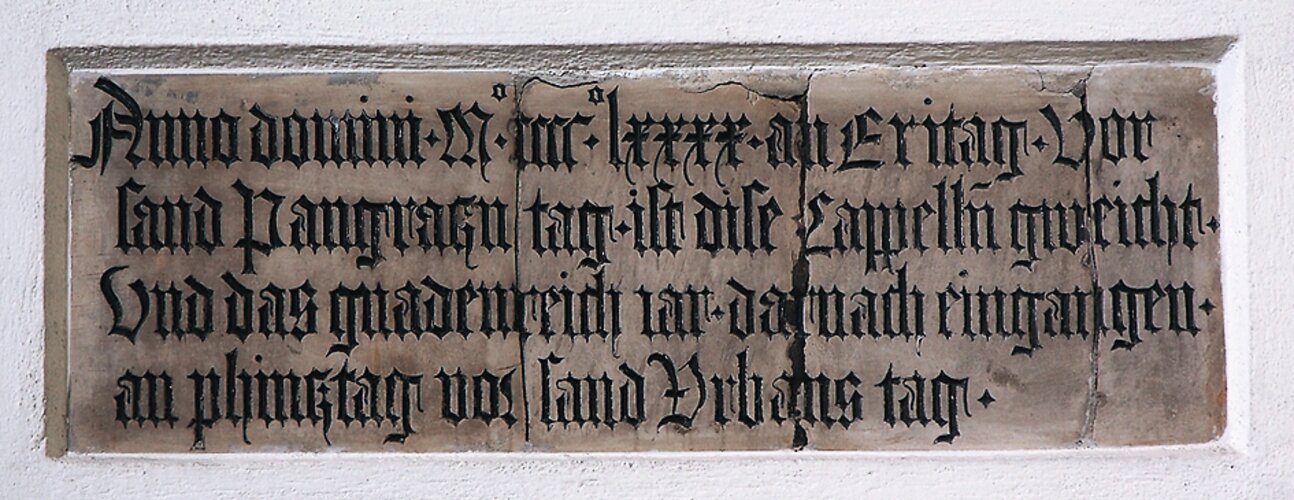 Anno domini · M° · cccc° · lxxxx · an Eritag · Vor
sand Pangraczn tag · ist dise Cappelln̄ gweicht ·
Vnd das gnadenreich iar · darnach eingangen ·
an phincztag vor sand Vrbans tag ·